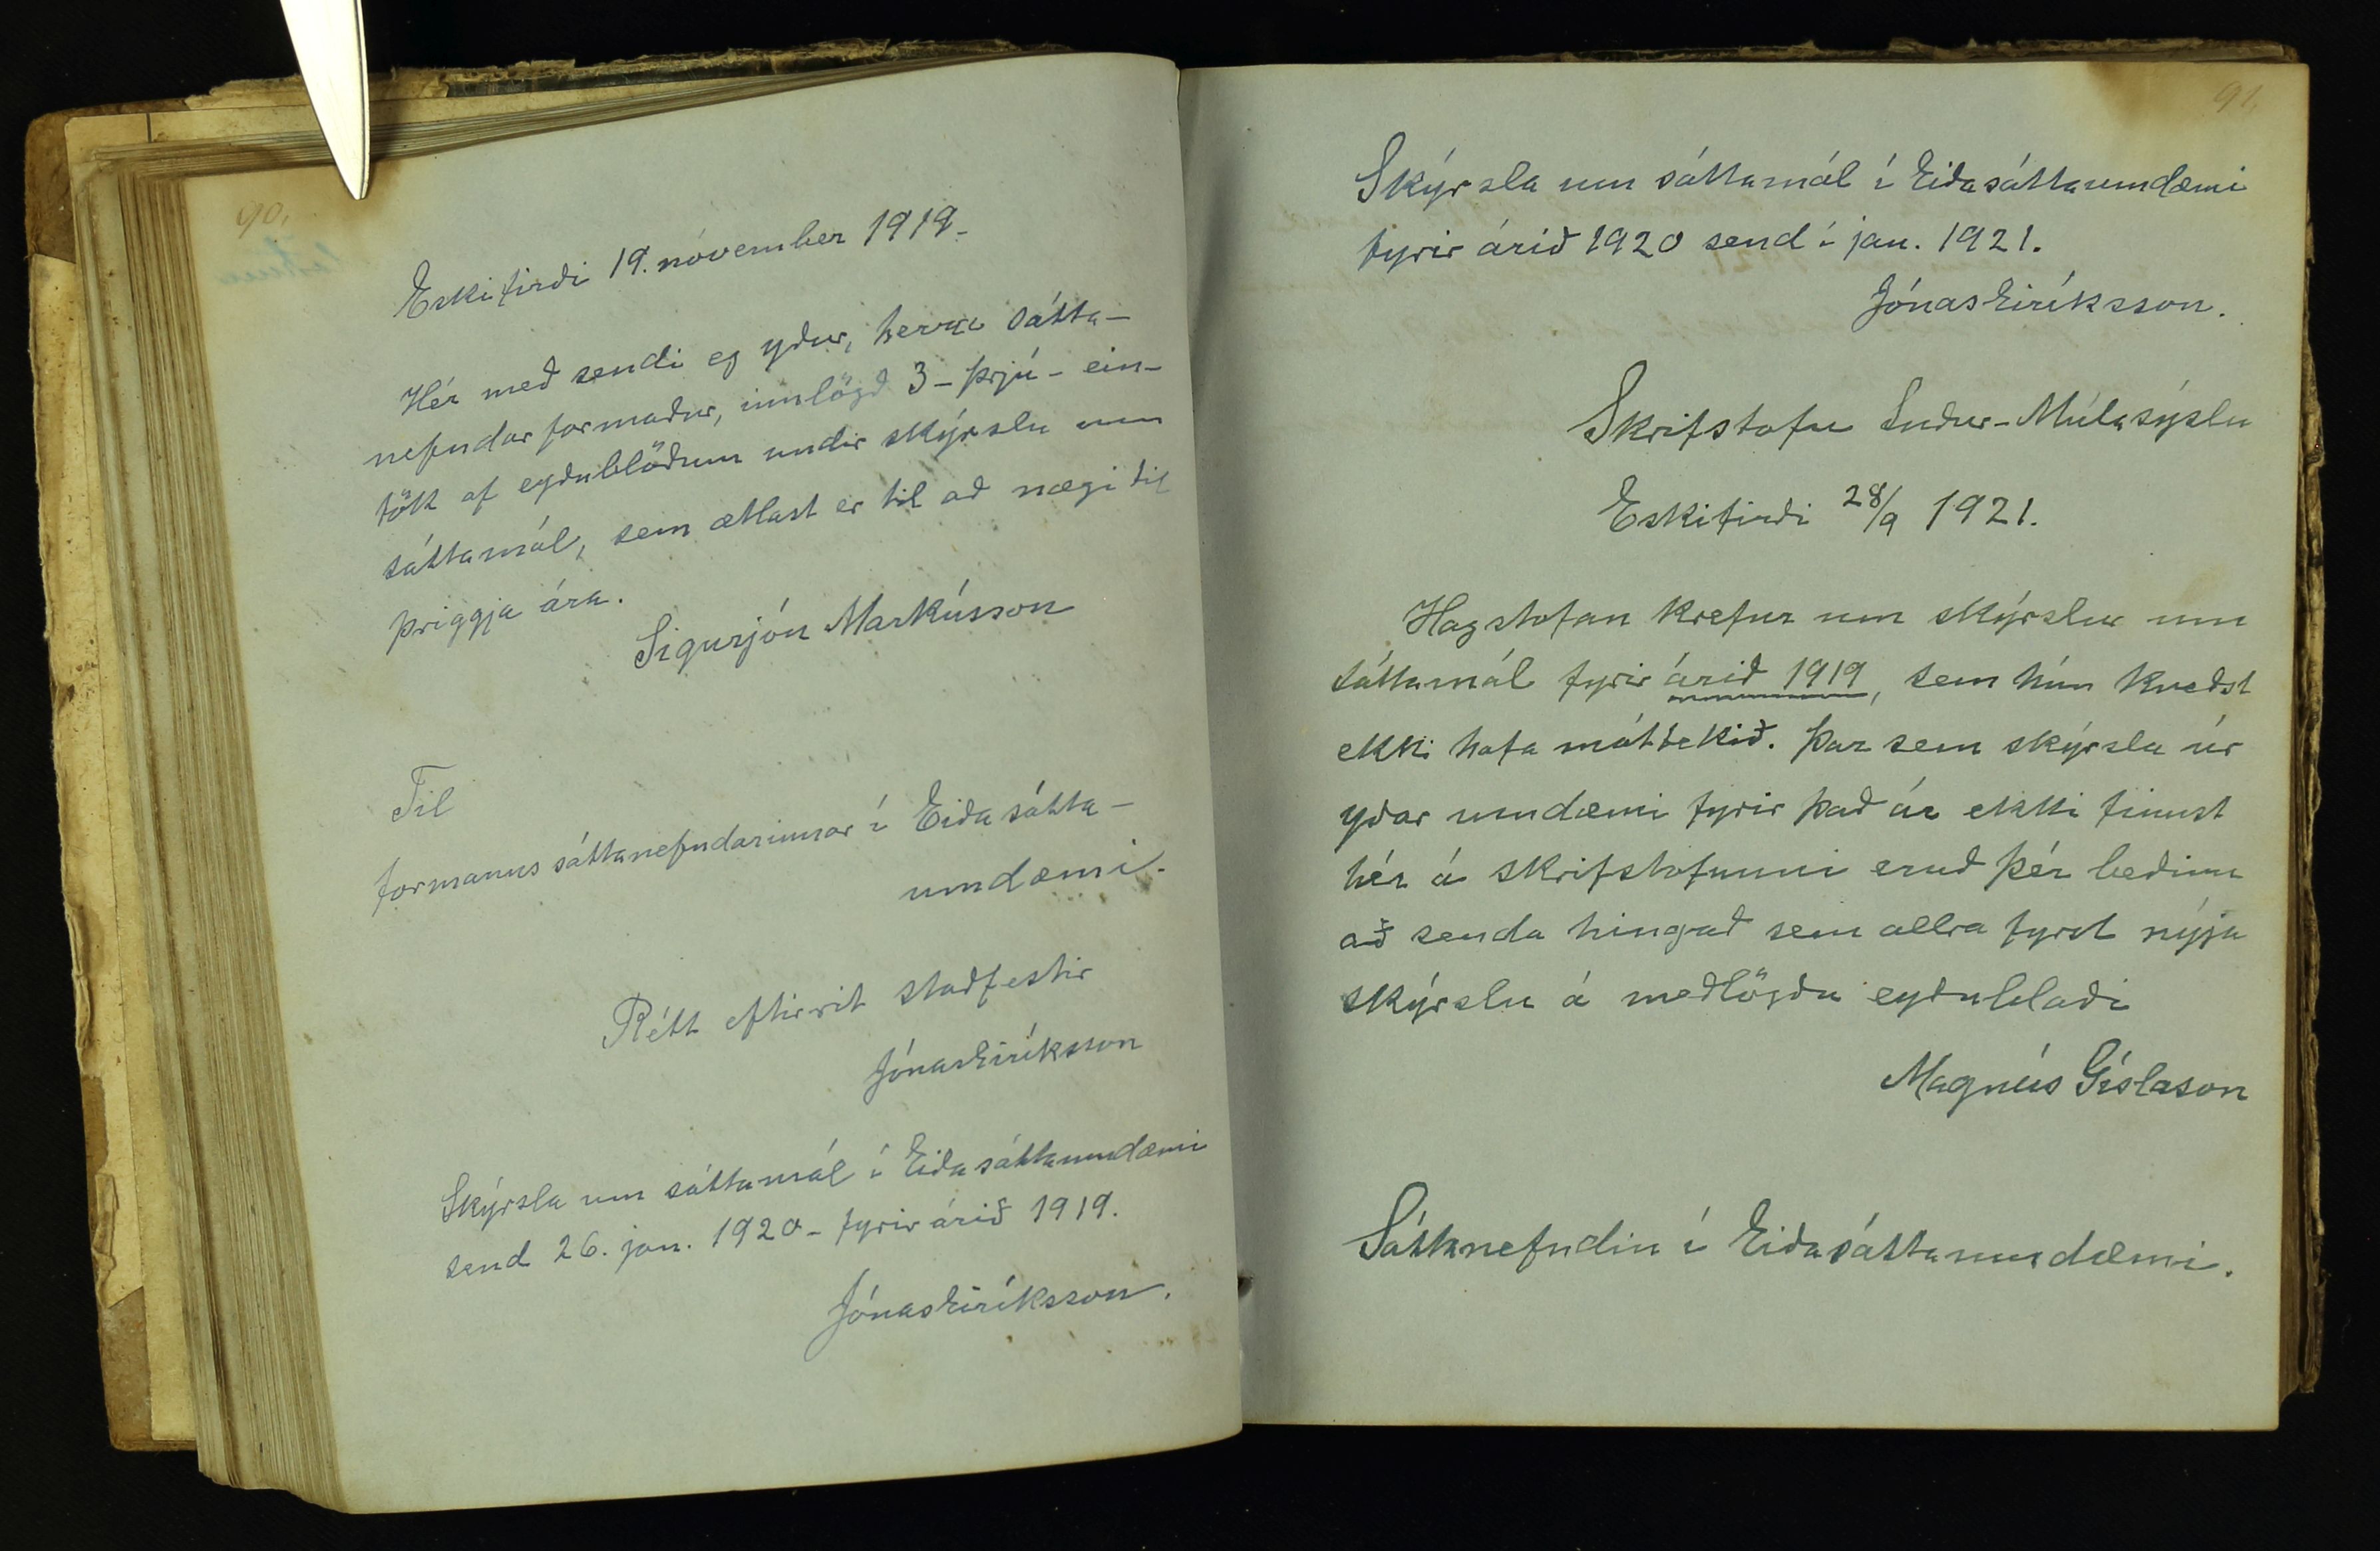 90.
Eskifirði 19. nóvember 1919.
Hér með sendi eg yður, herra sátta-
nefndar formaður, innlögð 3 - þrjú - ein-
tök af eyðublöðum undir skýrslu um
sáttamál, sem ætlast er til að nægi til
þriggja ára.
Sigurjón Markússon
Til
formanns sáttanefndarinnar í Eiðasátta-
umdæmi.
Rétt eftirrit staðfestir
Jónas Eiríksson
Skýrsla um sáttamál í Eiðasáttaumdæmi
send 26. jan. 1920 - fyrir árið 1919.
Jónas Eiríksson.
91.
Skýrsla um sáttamál í Eiðasáttaumdæmi
fyrir árið 1920 send í jan. 1921.
Jónas Eiríksson.
Skrifstofu Suður-Múlasýslu
Eskifirði 28/9 1921.
Hagstofan krefur um skýrslur um
sáttamál fyrir árið 1919, sem hún kveðst
ekki hafa móttekið. Þar sem skýrsla úr
yðar umdæmi fyrir það ár ekki finnst
hér á skrifstofunni eruð þér beðinn
að senda hingað sem allra fyrst nýja
skýrslu á meðlögðu eyðublaði
Magnús Gíslason
Sáttanefndin í Eiðasáttaumdæmi.